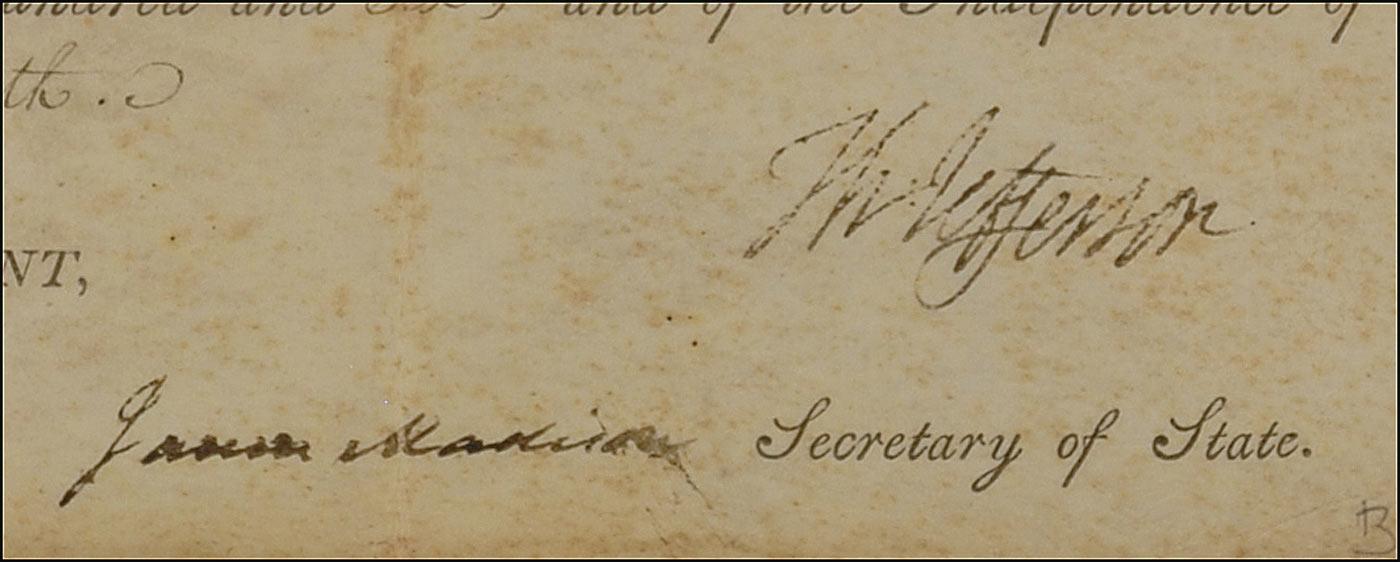 hundred and Six, and of the Independence of
th.
Th Jefferson
NT,
James Madison Secretary of State.
B